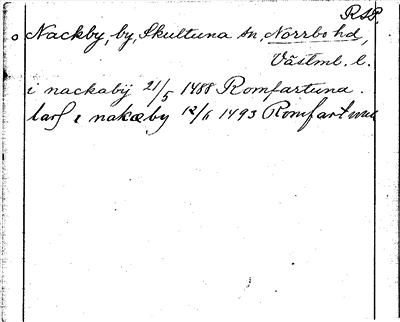 RSP.
Nackby, by, Skultuna sn, Norrbo hd,
Västml. l.
i nackabÿ 21/5 1488 Romfartuna.
lars i nakæby 12/6 1493 Romfartuna